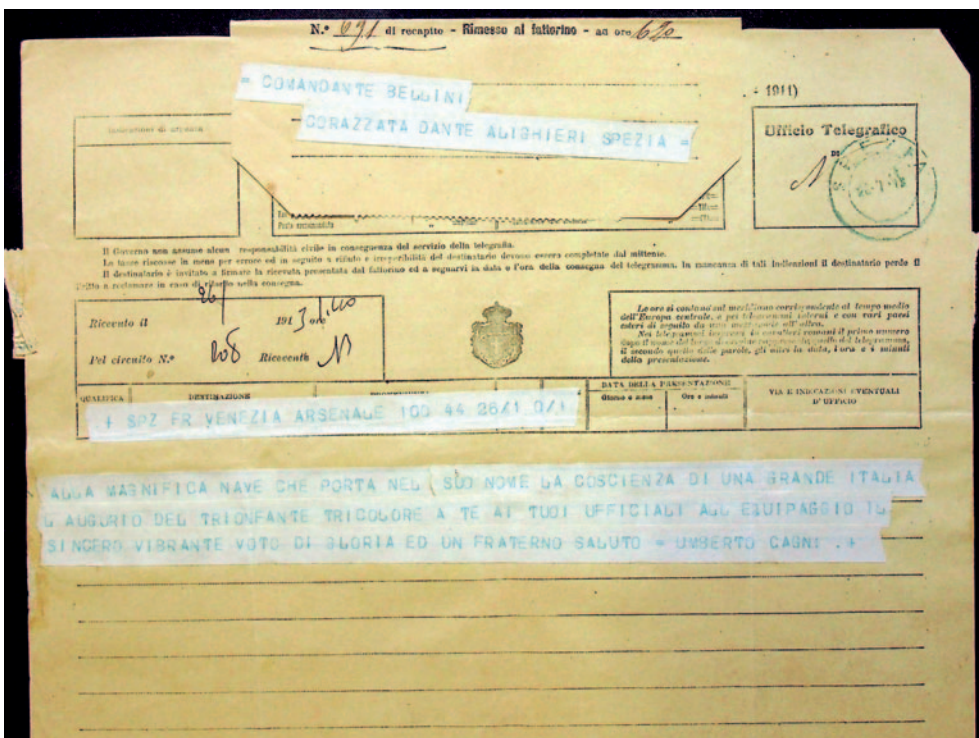 N.º 691 di recapito - Rimesso al fattorino - ad ore 620
= COMANDANTE BELLINI
CORAZZATA DANTE ALIGHIERI SPEZIA =
1911)
Indicazioni di urgenza
Ufficio Telegrafico
DI
SPEZIA
Il Governo non assume alcuna responsabilità civile in conseguenza del servizio della telegrafia.
Le tasse riscosse in meno per errore ed in seguito a rifiuto e irreperibilità del destinatario devono essere completate dal mittente.
Il destinatario è invitato a firmare la ricevuta presentata dal fattorino ed a segnarvi la data e l'ora della consegna del telegramma. In mancanza di tali indicazioni il destinatario perde il
diritto a reclamare in caso di ritardo nella consegna.
Ricevuto il 26/1 1913 ore
Pel circuito N.º 208 Ricevente
Le ore si contano sul meridiano corrispondente al tempo medio
dell'Europa centrale, e pei telegrammi interni e con vari paesi
esteri di seguito da una mezzanotte all'altra.
Nei telegrammi impressi in caratteri romani il primo numero
dopo il nome del luogo di origine rappresenta quello del telegramma,
il secondo quello delle parole, gli altri la data, l'ora e i minuti
della presentazione.
QUALIFICA DESTINAZIONE DATA DELLA PRESENTAZIONE VIA E INDICAZIONI EVENTUALI
Giorno e mese Ore e minuti D'UFFICIO
+ SPZ FR VENEZIA ARSENALE 100 44 26/1 0/1
ALLA MAGNIFICA NAVE CHE PORTA NEL SUO NOME LA COSCIENZA DI UNA GRANDE ITALIA
L AUGURIO DEL TRIONFANTE TRICOLORE A TE AI TUOI UFFICIALI ALL EQUIPAGGIO IL
SINCERO VIBRANTE VOTO DI GLORIA ED UN FRATERNO SALUTO = UMBERTO CAGNI .+